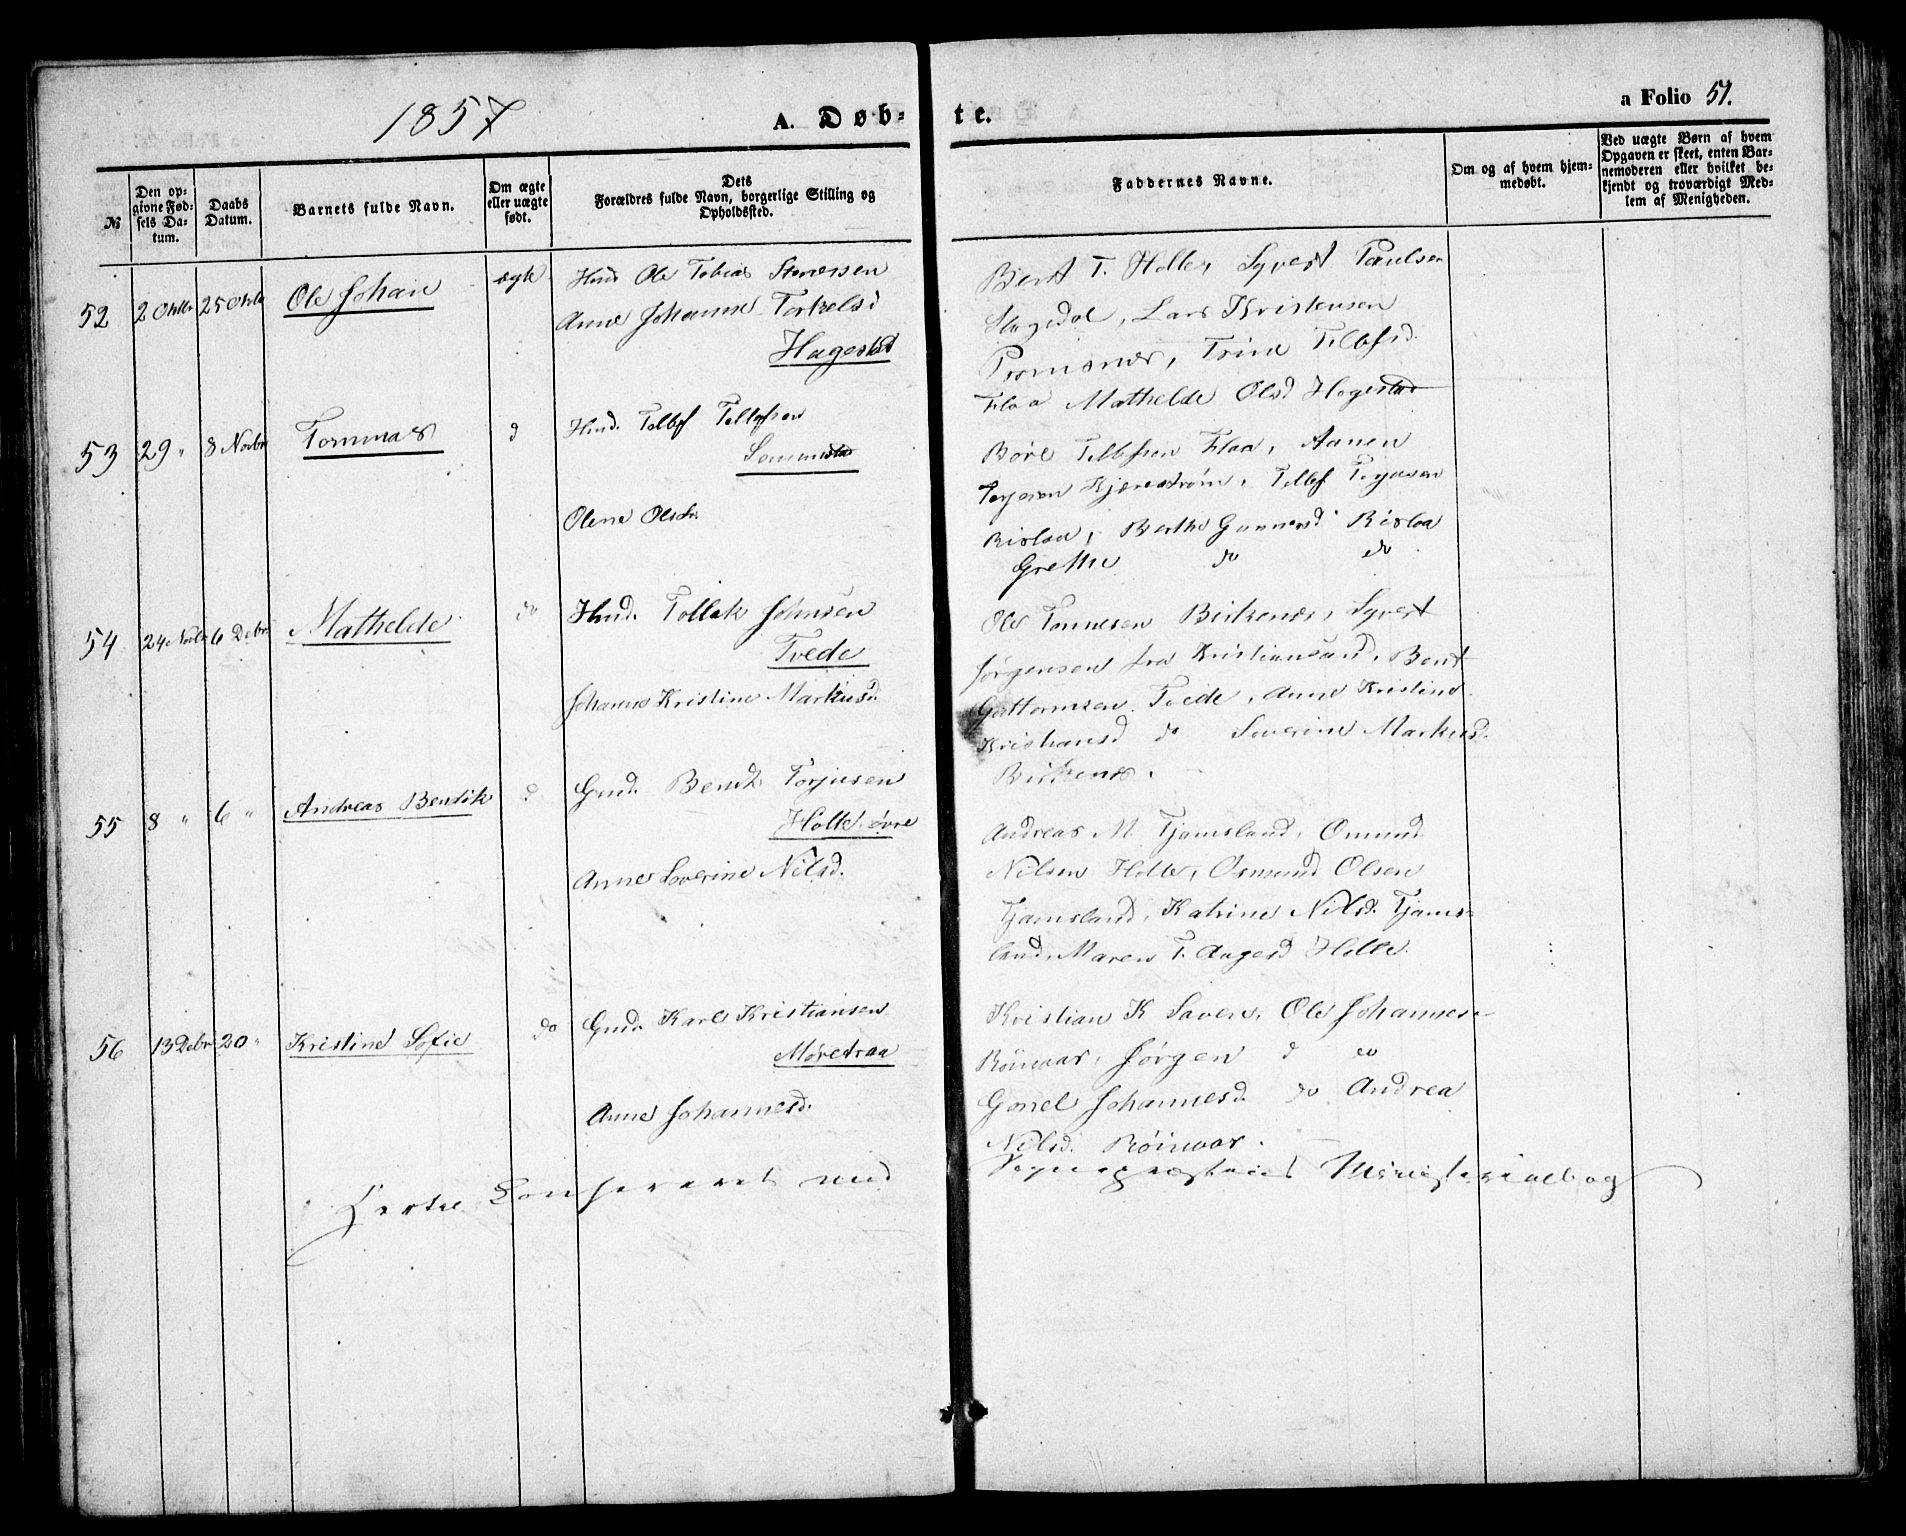 1857
A. Døb-
te.
a Folio 51.
№
Den op-
givne Fød-
sels Da-
tum.
Daabs
Datum.
Barnets fulde Navn.
Om ægte
eller uægte
født.
Dets
Forældres fulde Navn, borgerlige Stilling og
Opholdssted.
Faddernes Navne.
Om og af hvem hjem-
medøbt.
Ved uægte Børn af hvem
Opgaven er skeet, enten Bar-
nemoderen eller hvilket be-
kjendt og troværdigt Med-
lem af Menigheden.
52 2 Oktbr 25 Oktb Ole Johan ægte Hmd Ole Tobias
Anne Johanne Torkelsd
Hagestad
Bent T. Holler, Syvert Paulsen
Lars Kristensen
Trine Tellefsd.
Flaa Mathelde Olsd Hagestad
53 29 " 8 Novbr Tommas d Hmd. Tellef Tellefsen
Olene Olsdr.
Børe Tellefsen Flaa, Aanen
Terjesen Kjærestrøm, Tellef Terjesen
Rislaa, Berthe Gunnersd Rislaa
Grethe do do
54 24 Novbr 6 Debr. Mathelde do Hmd. Tollak Johnsen
Tvede
Johanne Kristine Markusd.
Ole Tønnesen Birkenes, Syvert
Jørgensen fra Kristiansand, Bent
Guttormsen Tvede, Anne Kristine
Kristiansd do Severine Markusd.
Birkenes.
55 8 " 6 " Andreas Bendik d Gmd. Bendt Torjusen
Holte øvre
Anne Severine Nilsd.
Andreas M. Tjamsland, Osmund
Nilsen Holte, Osmund Olsen
Tjamsland, Katrine Nilsd. Tjams-
land, Maren T. Aagesd Holte.
56 13 Debr 20 " Kristine Sofie do Gmd. Karl Kristiansen
Møretraa
Anne Johannesd.
Kristian K Saven, Ole Johannese
Røinaas, Jørgen d do
Gonel Johannesd. do Andrea
Nilsd. Røinaas.
Confereret med
Sognepræstens Ministerialbog